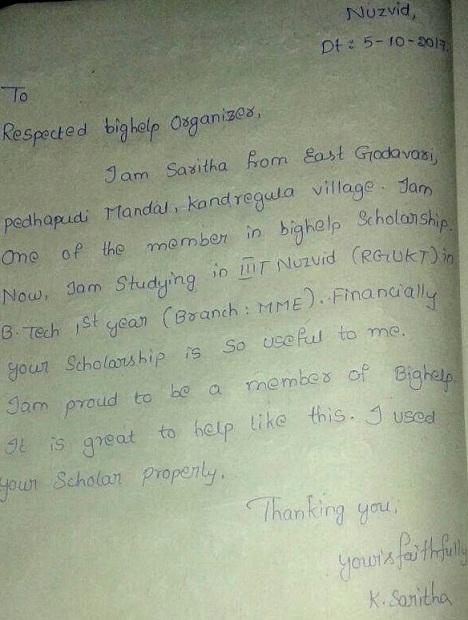 Nuzvid,
Dt : 5-10-2017.
To
Respected bighelp Organizer,
Iam Saritha from East Godavari,
pedhapudi Mandal, kandregula village. Iam
One of the member in bighelp Scholarship.
Now, Iam Studying in IIIT Nuzvid (RGUKT) in
B.Tech 1st year (Branch : MME). Financially
your Scholarship is so useful to me.
Iam proud to be a member of Bighelp.
It is great to help like this. I used
your Scholar properly.
Thanking you,
your's faithfully
K. Saritha